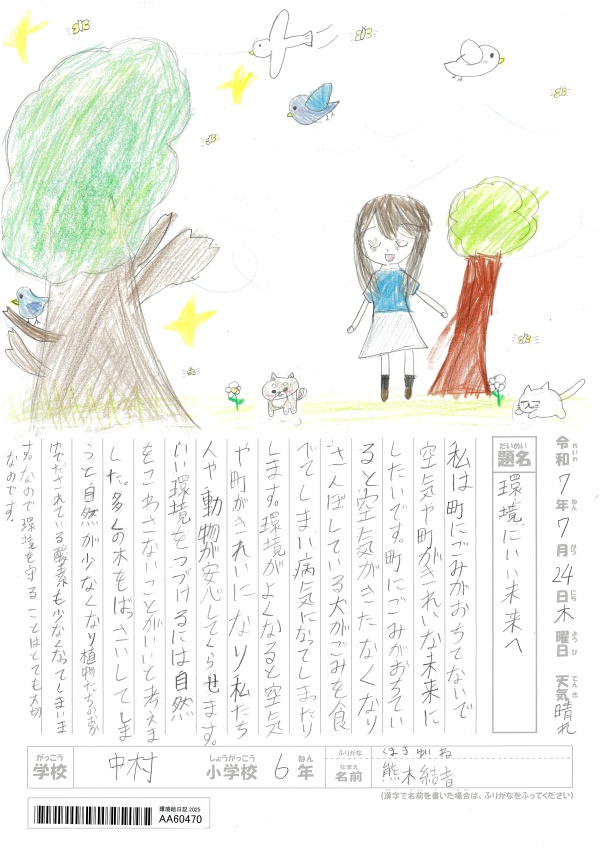 令和7年7月24日木曜日 天気晴れ
題名 環境にいい未来へ
私は町にごみがおちてないで
空気や町がきれいな未来に
したいです。町にごみがおちてい
ると空気がきたなくなり
さんぽしている犬がごみを食
べてしまい病気になってしまったり
します。環境がよくなると空気
や町がきれいになり私たち
人や動物が安心してくらせます。
いい環境をつづけるには自然
をこわさないことがいいと考えま
した。多くの木をばっさいしてしま
うと自然が少なくなり植物たちのおか
げでだされている酸素も少なくなってしまいま
す。なので環境を守ることはとても大切
なのです。
学校 中村 小学校 6年 名前 熊木結音
ふりがな くまき ゆいね
(漢字で名前を書いた場合は、ふりがなをふってください)
環境絵日記 2025
AA60470